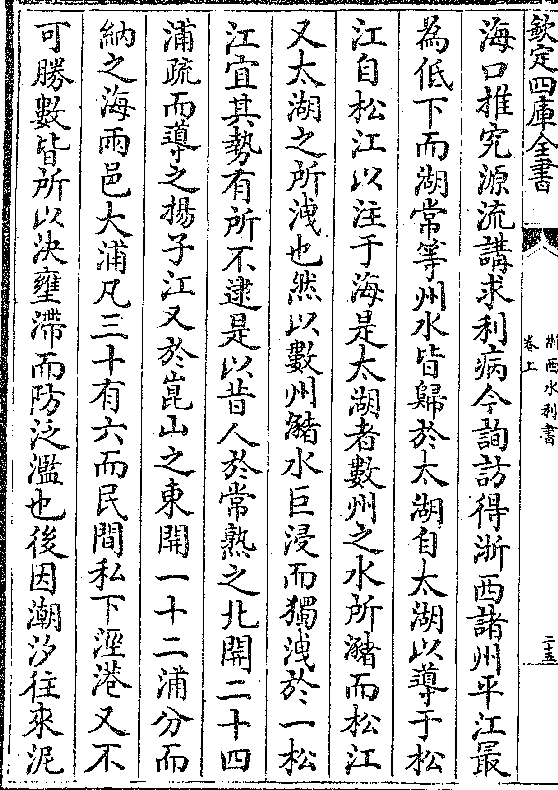 欽定四庫全書
浙西水利書
卷上
二十五
海口推究源流講求利病今詢訪得浙西諸州平江最
為低下而湖常等州水皆歸於太湖自太湖以導于松
江自松江以注于海是太湖者數州之水所瀦而松江
又太湖之所洩也然以數州瀦水巨浸而獨洩於一松
江宜其勢有所不逮是以昔人於常熟之北開二十四
浦疏而導之揚子江又於崑山之東開一十二浦分而
納之海兩邑大浦凡三十有六而民間私下涇港又不
可勝數皆所以決壅滯而防泛濫也後因潮汐往來泥